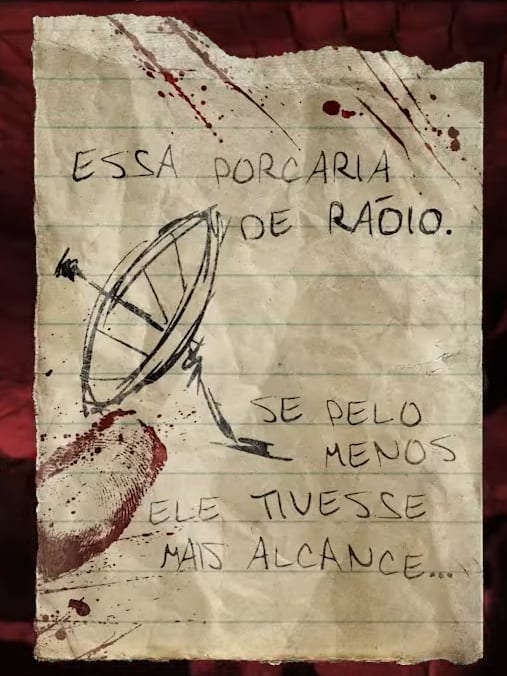 ESSA PORCARIA
DE RÁDIO.
SE PELO
MENOS
ELE TIVESSE
MAIS ALCANCE...